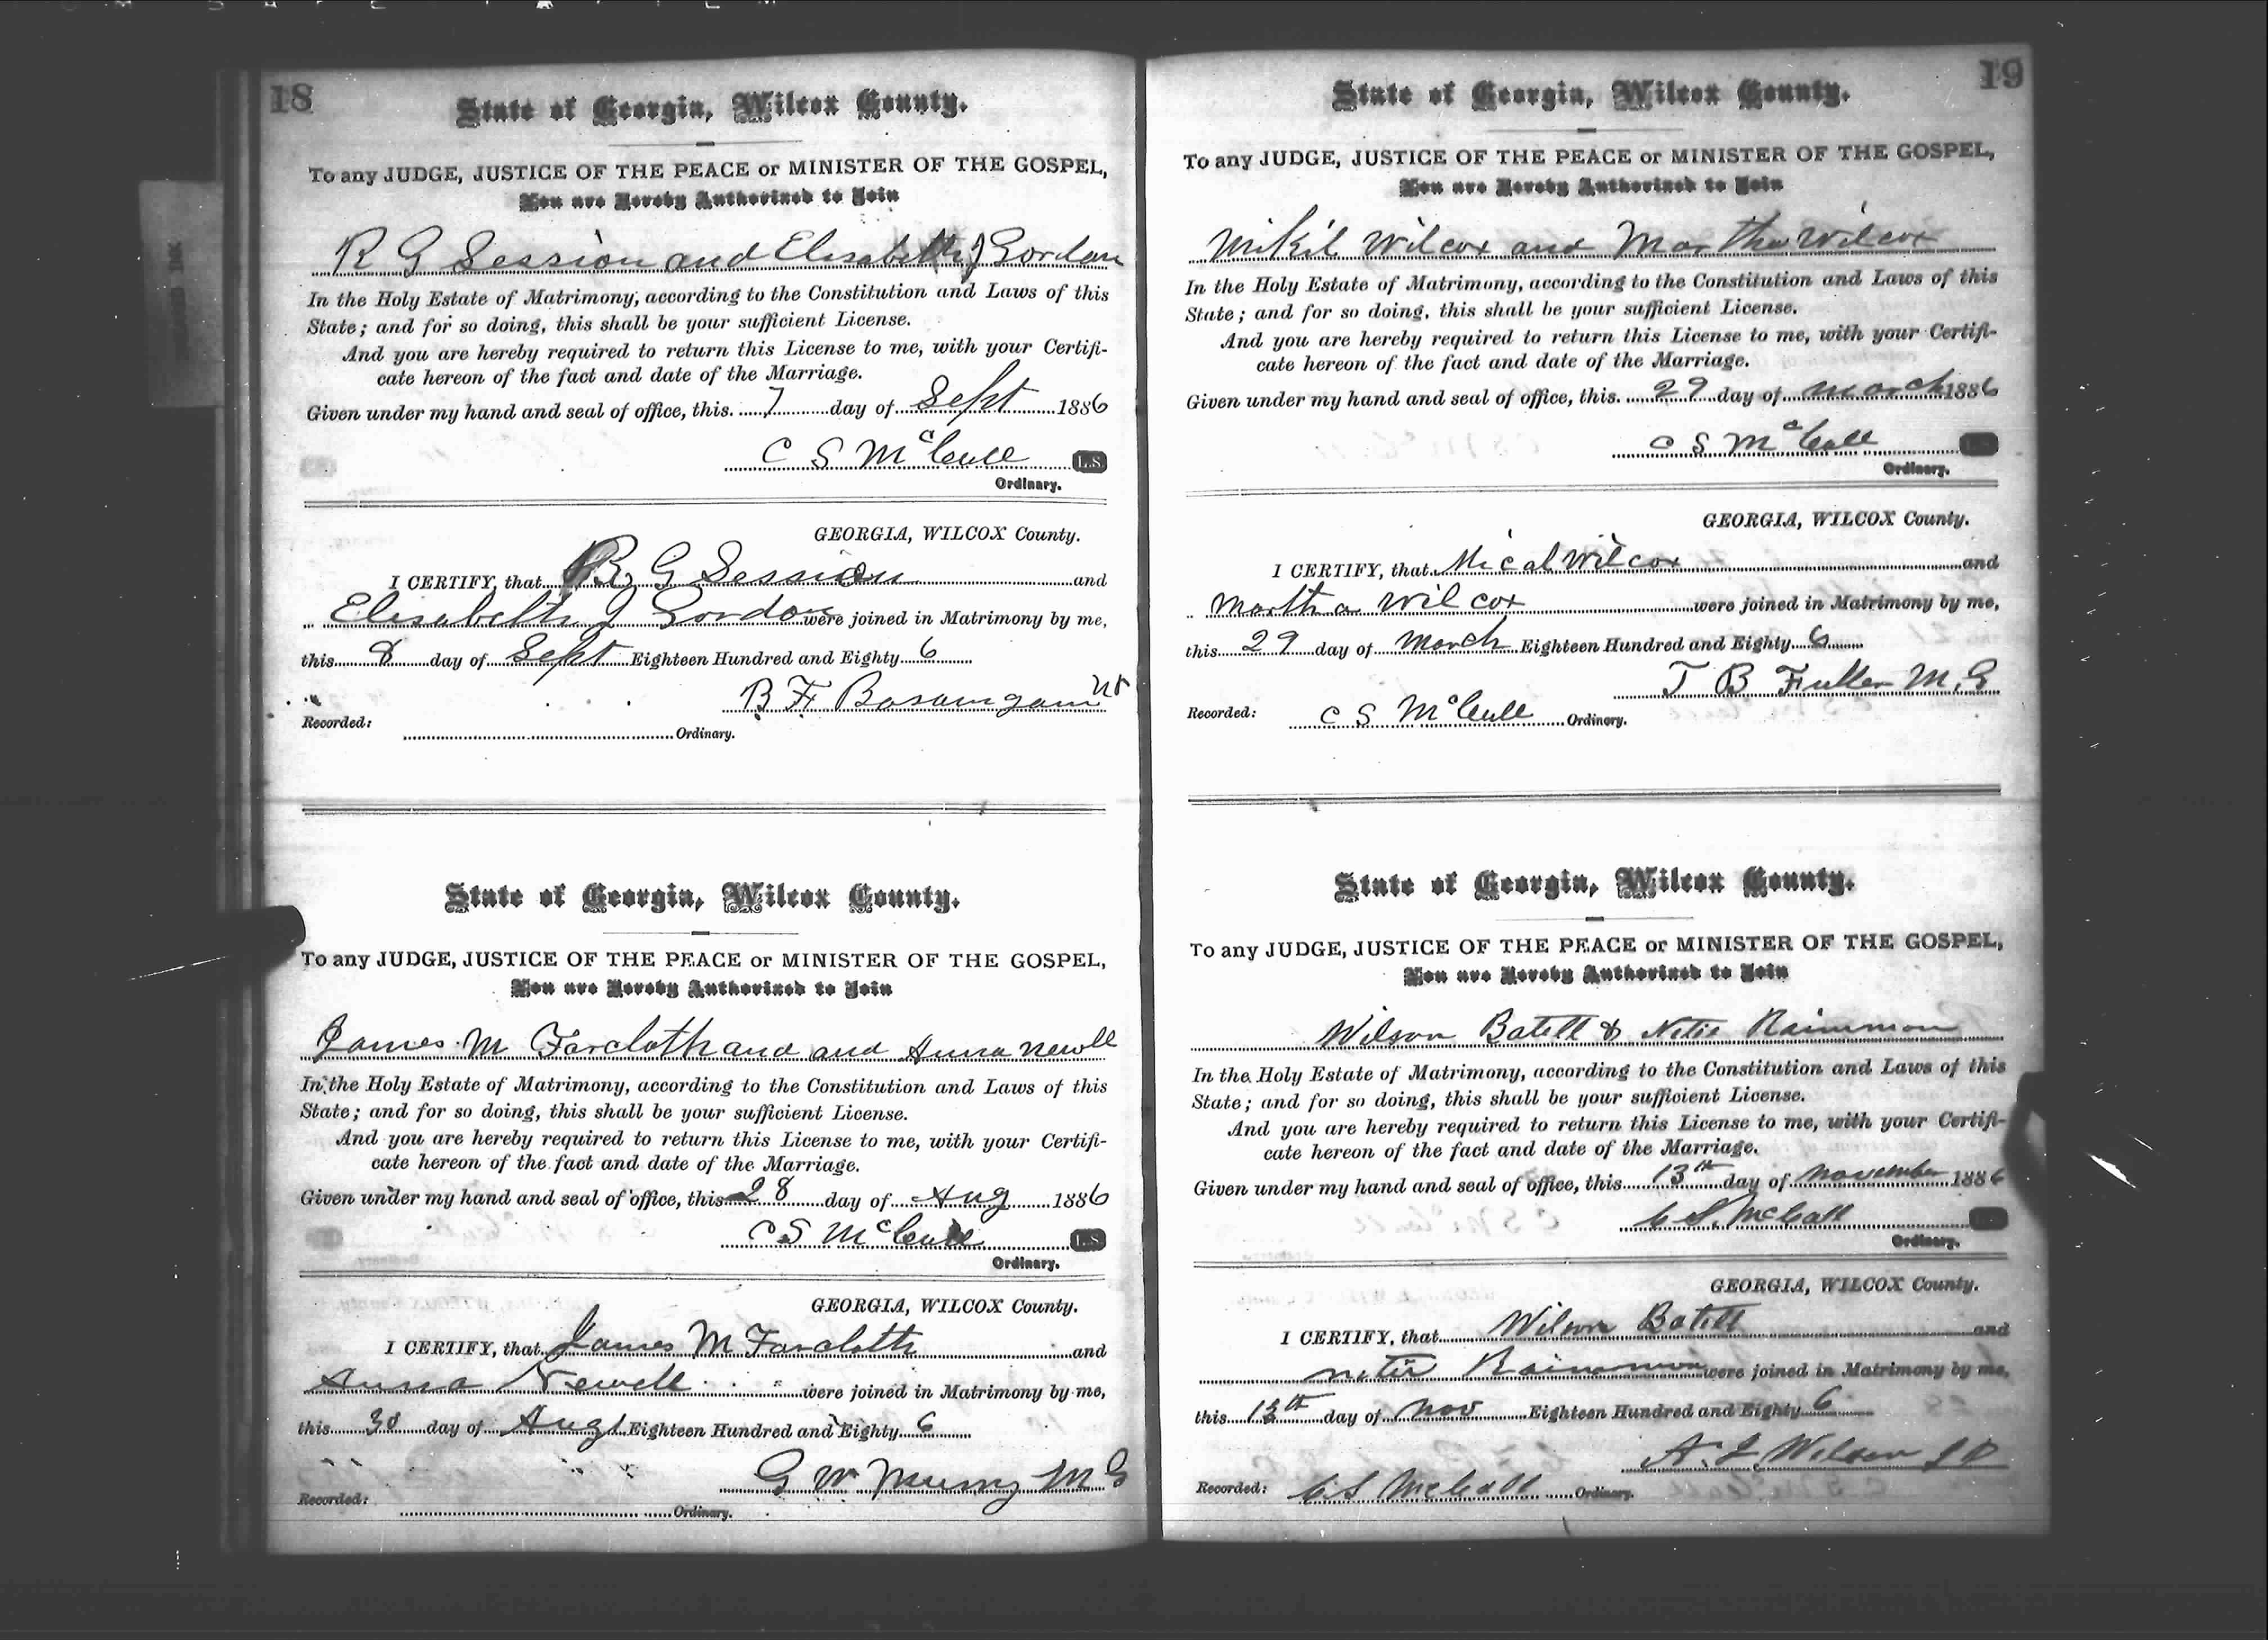 18
State of Georgia, Wilcox County.
To any JUDGE, JUSTICE OF THE PEACE or MINISTER OF THE GOSPEL,
You are Hereby Authorized to Join
R G Session and Elisabeth J Gordon
In the Holy Estate of Matrimony, according to the Constitution and Laws of this
State; and for so doing, this shall be your sufficient License.
And you are hereby required to return this License to me, with your Certifi-
cate hereon of the fact and date of the Marriage.
Given under my hand and seal of office, this 7 day of Sept 1886
C S McCall L.S.
Ordinary.
GEORGIA, WILCOX County.
I CERTIFY, that R G Session and
Elisabeth J Gordon were joined in Matrimony by me,
this 8 day of Sept Eighteen Hundred and Eighty 6
B F
Recorded:
Ordinary.
State of Georgia, Wilcox County.
To any JUDGE, JUSTICE OF THE PEACE or MINISTER OF THE GOSPEL,
You are Hereby Authorized to Join
James M Farcloth and and Anna Newll
In the Holy Estate of Matrimony, according to the Constitution and Laws of this
State; and for so doing, this shall be your sufficient License.
And you are hereby required to return this License to me, with your Certifi-
cate hereon of the fact and date of the Marriage.
Given under my hand and seal of office, this 28 day of Aug 1886
C S McCall L.S.
Ordinary.
GEORGIA, WILCOX County.
I CERTIFY, that James M Farcloth and
Anna Newell were joined in Matrimony by me,
this 30 day of Augt Eighteen Hundred and Eighty 6
G W M G
Recorded:
Ordinary.
19
State of Georgia, Wilcox County.
To any JUDGE, JUSTICE OF THE PEACE or MINISTER OF THE GOSPEL,
You are Hereby Authorized to Join
Mikil Wilcox and Martha Wilcox
In the Holy Estate of Matrimony, according to the Constitution and Laws of this
State; and for so doing, this shall be your sufficient License.
And you are hereby required to return this License to me, with your Certifi-
cate hereon of the fact and date of the Marriage.
Given under my hand and seal of office, this 29 day of March 1886
C S McCall
Ordinary.
GEORGIA, WILCOX County.
I CERTIFY, that Mical Wilcox and
Martha Wilcox were joined in Matrimony by me,
this 29 day of March Eighteen Hundred and Eighty 6
T B Fuller M.G
Recorded: C S McCall Ordinary.
State of Georgia, Wilcox County.
To any JUDGE, JUSTICE OF THE PEACE or MINISTER OF THE GOSPEL,
You are Hereby Authorized to Join
Wilson Batell & Netie
In the Holy Estate of Matrimony, according to the Constitution and Laws of this
State; and for so doing, this shall be your sufficient License.
And you are hereby required to return this License to me, with your Certifi-
cate hereon of the fact and date of the Marriage.
Given under my hand and seal of office, this 13th day of November 1886
C S. McCall
Ordinary.
GEORGIA, WILCOX County.
I CERTIFY, that Wilson Batell and
Netie were joined in Matrimony by me,
this 13th day of Nov Eighteen Hundred and Eighty 6
Wilson J P
Recorded: C S McCall Ordinary.